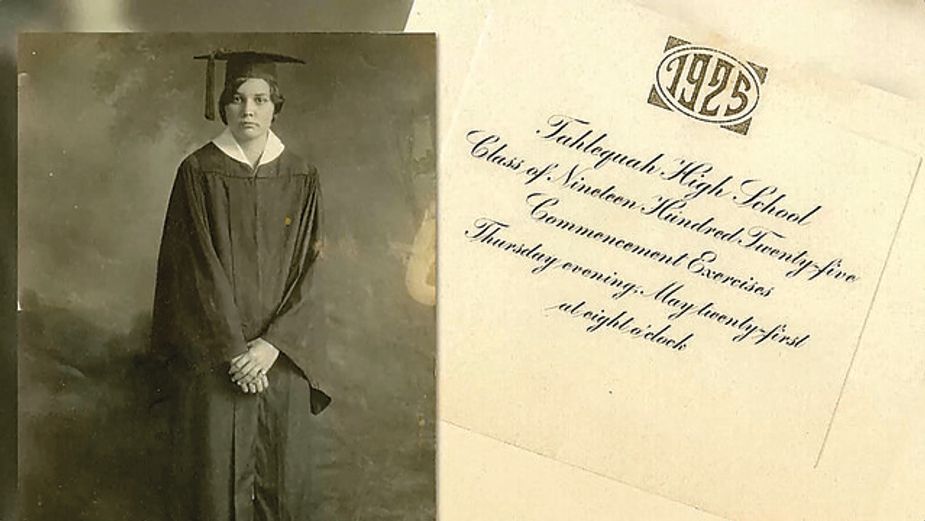 1925
Tahlequah High School
Class of Nineteen Hundred Twenty-five
Commencement Exercises
Thursday evening, May twenty-first
at eight o'clock